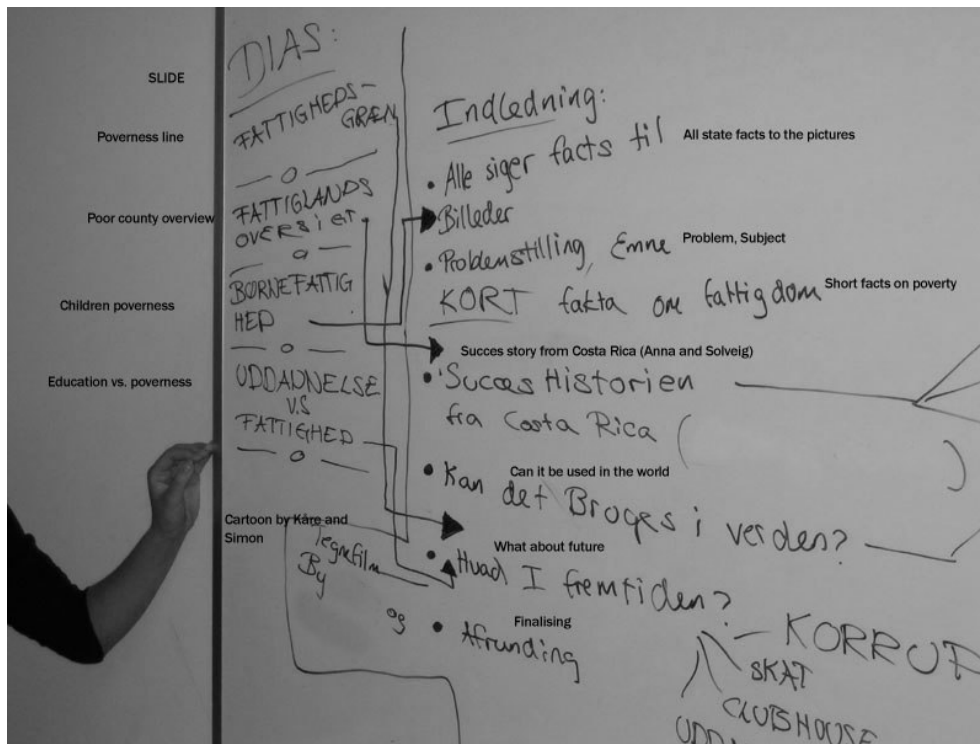 SLIDE
DIAS:
Poverness line
FATTIGHEDS-
GRÆN
Poor county overview
FATTIGLANDS
OVERSIGT
Children poverness
BØRNEFATTIG
HED
Education vs. poverness
UDDANNELSE
V.S
FATTIGHED
Cartoon by Kåre and
Simon
Tegnefilm
By
og
Indledning:
• Alle siger facts til
All state facts to the pictures
Billeder
• Problemstilling, Emne
Problem, Subject
KORT fakta om fattigdom
Short facts on poverty
Succes story from Costa Rica (Anna and Solveig)
• Succes Historien
fra Costa Rica ( )
Can it be used in the world
• Kan det Bruges i verden?
What about future
• Hvad I fremtiden?
Finalising
• Afrunding
KORRUP
SKAT
CLUBHOUSE
UDDA